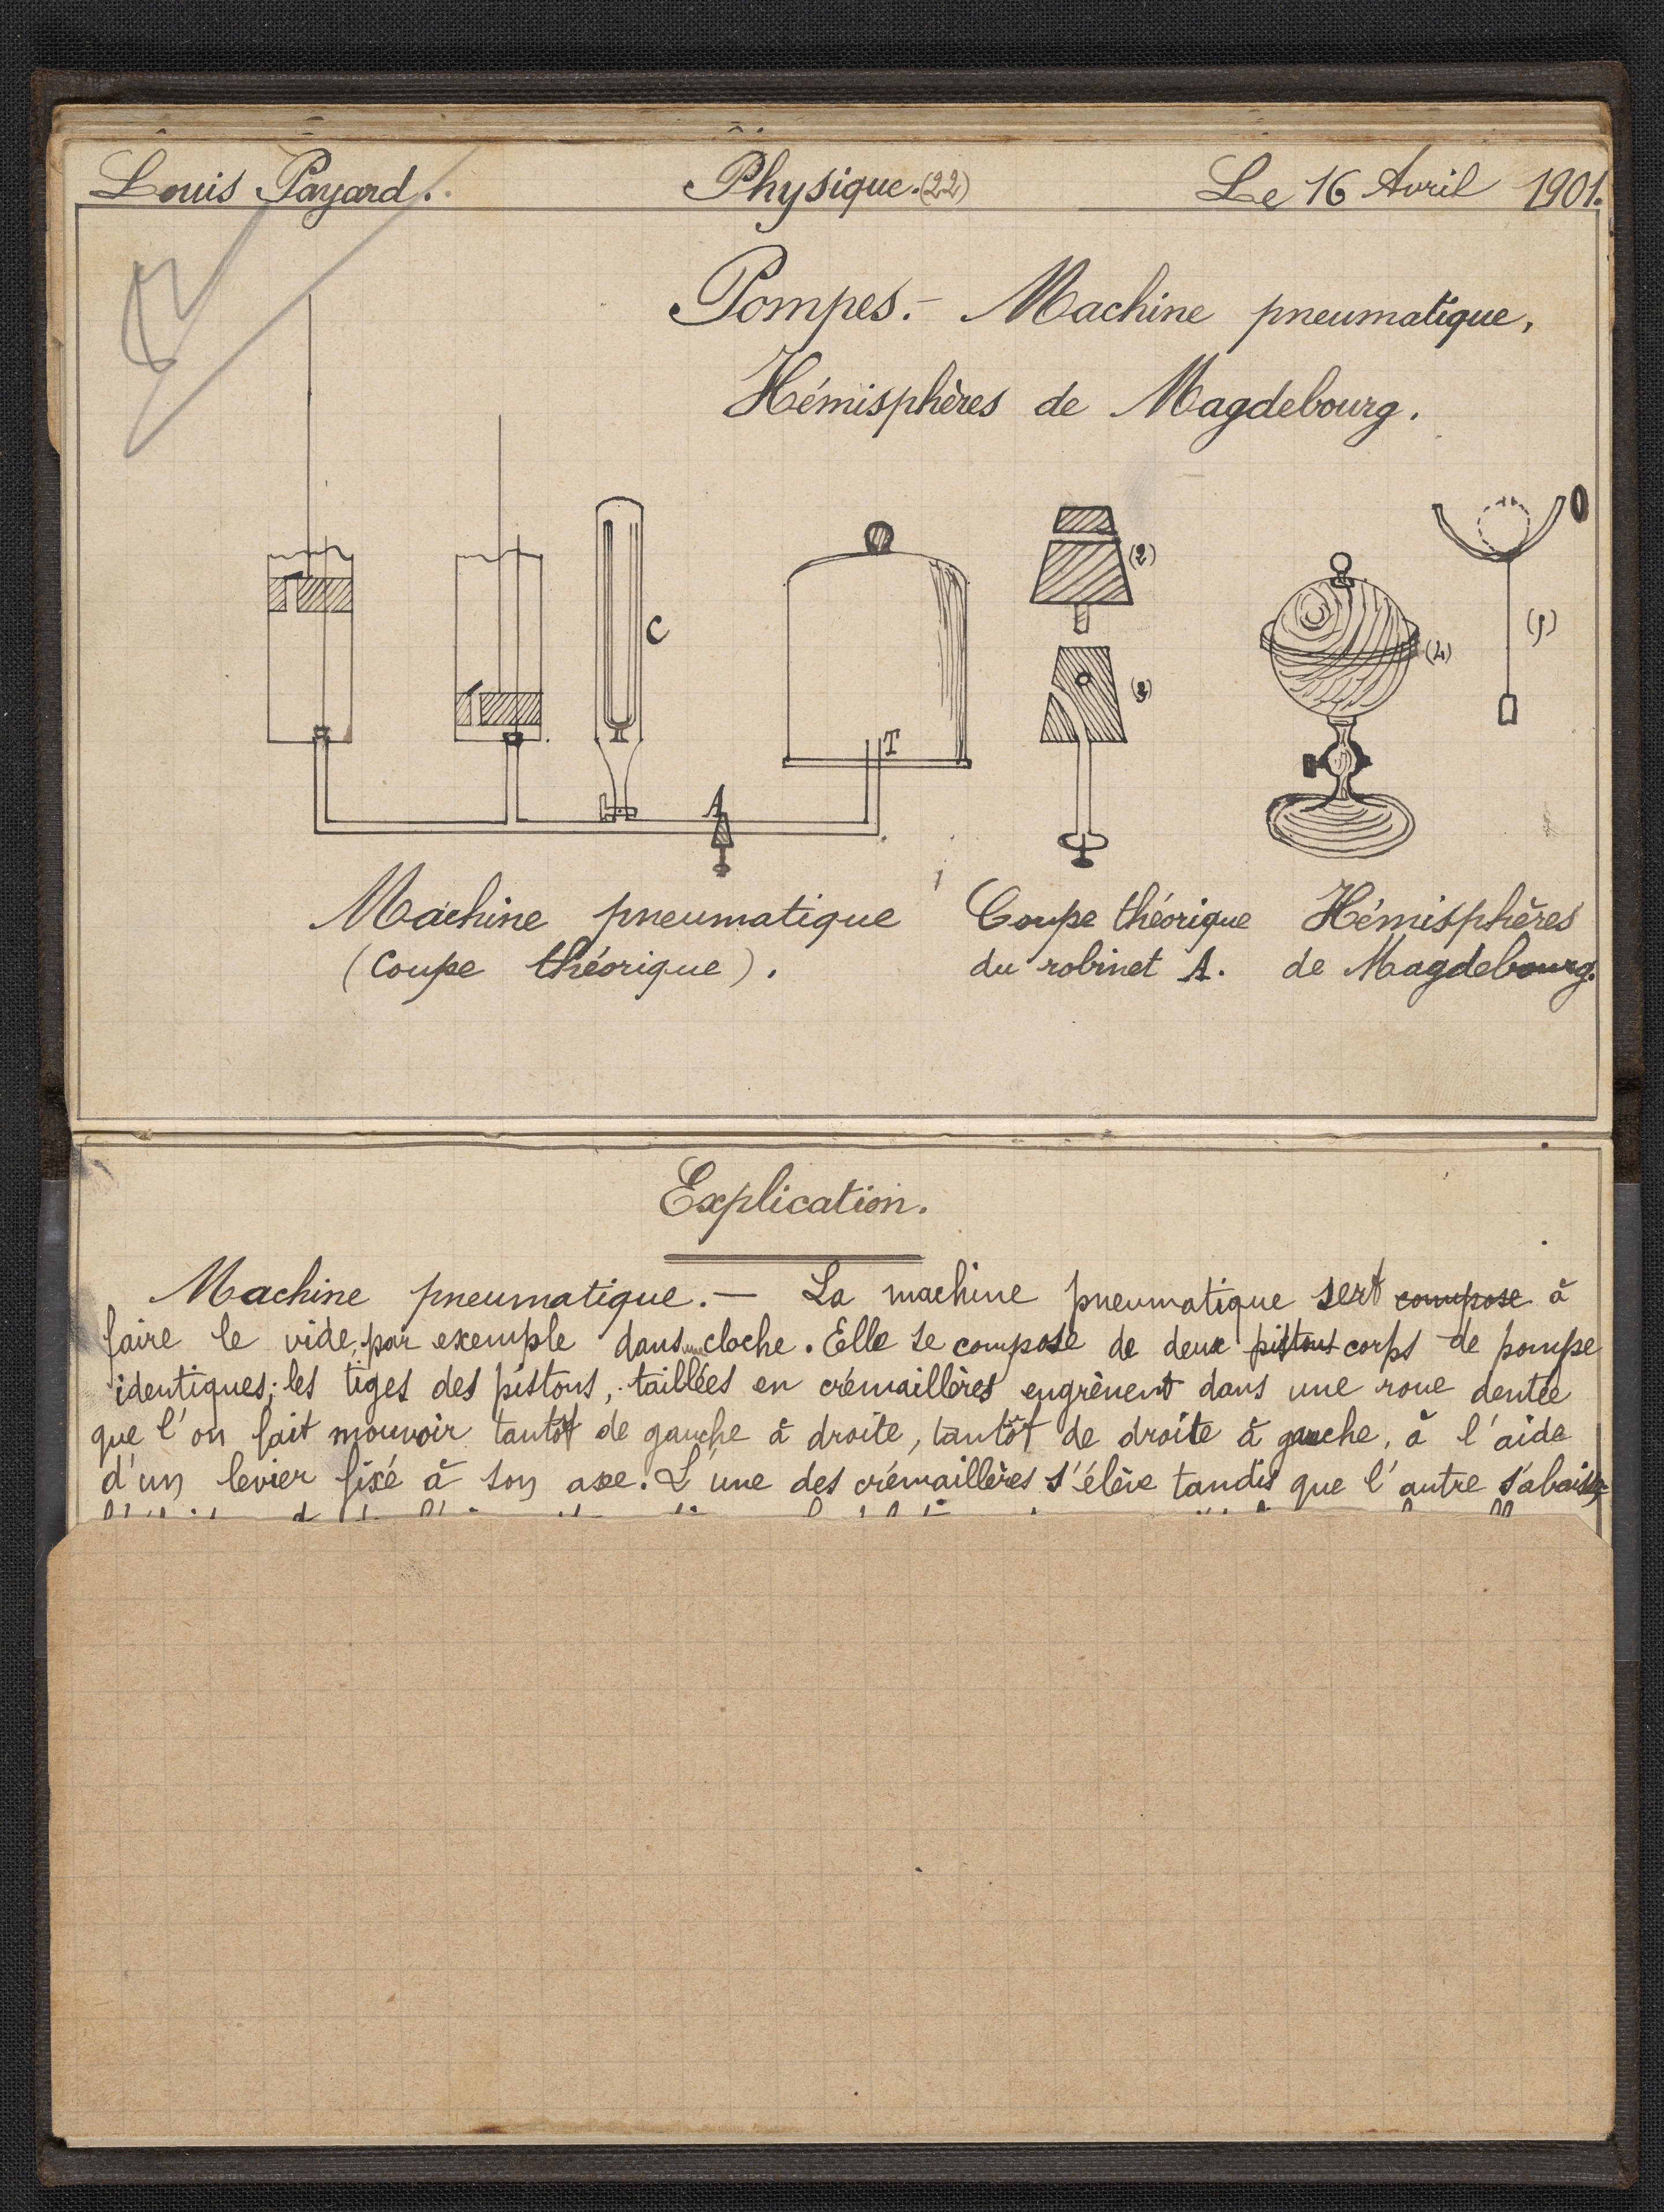 Louis Payard. Physique. (22) Le 16 Avril 1901.
Pompes. - Machine pneumatique,
Hémisphères de Magdebourg.
C
A
T
(2)
(3)
(4)
Machine pneumatique
(Coupe théorique).
Coupe théorique
du robinet A.
Hémisphères
de Magdebourg.
Explication.
Machine pneumatique. — La machine pneumatique sert compose à
faire le vide, par exemple dans une cloche. Elle se compose de deux pistons corps de pompe
identiques; les tiges des pistons, taillées en crémaillères engrènent dans une roue dentée
que l'on fait mouvoir tantôt de gauche à droite, tantôt de droite à gauche, à l'aide
d'un levier fixé à son axe. L'une des crémaillères s'élève tandis que l'autre s'abaisse